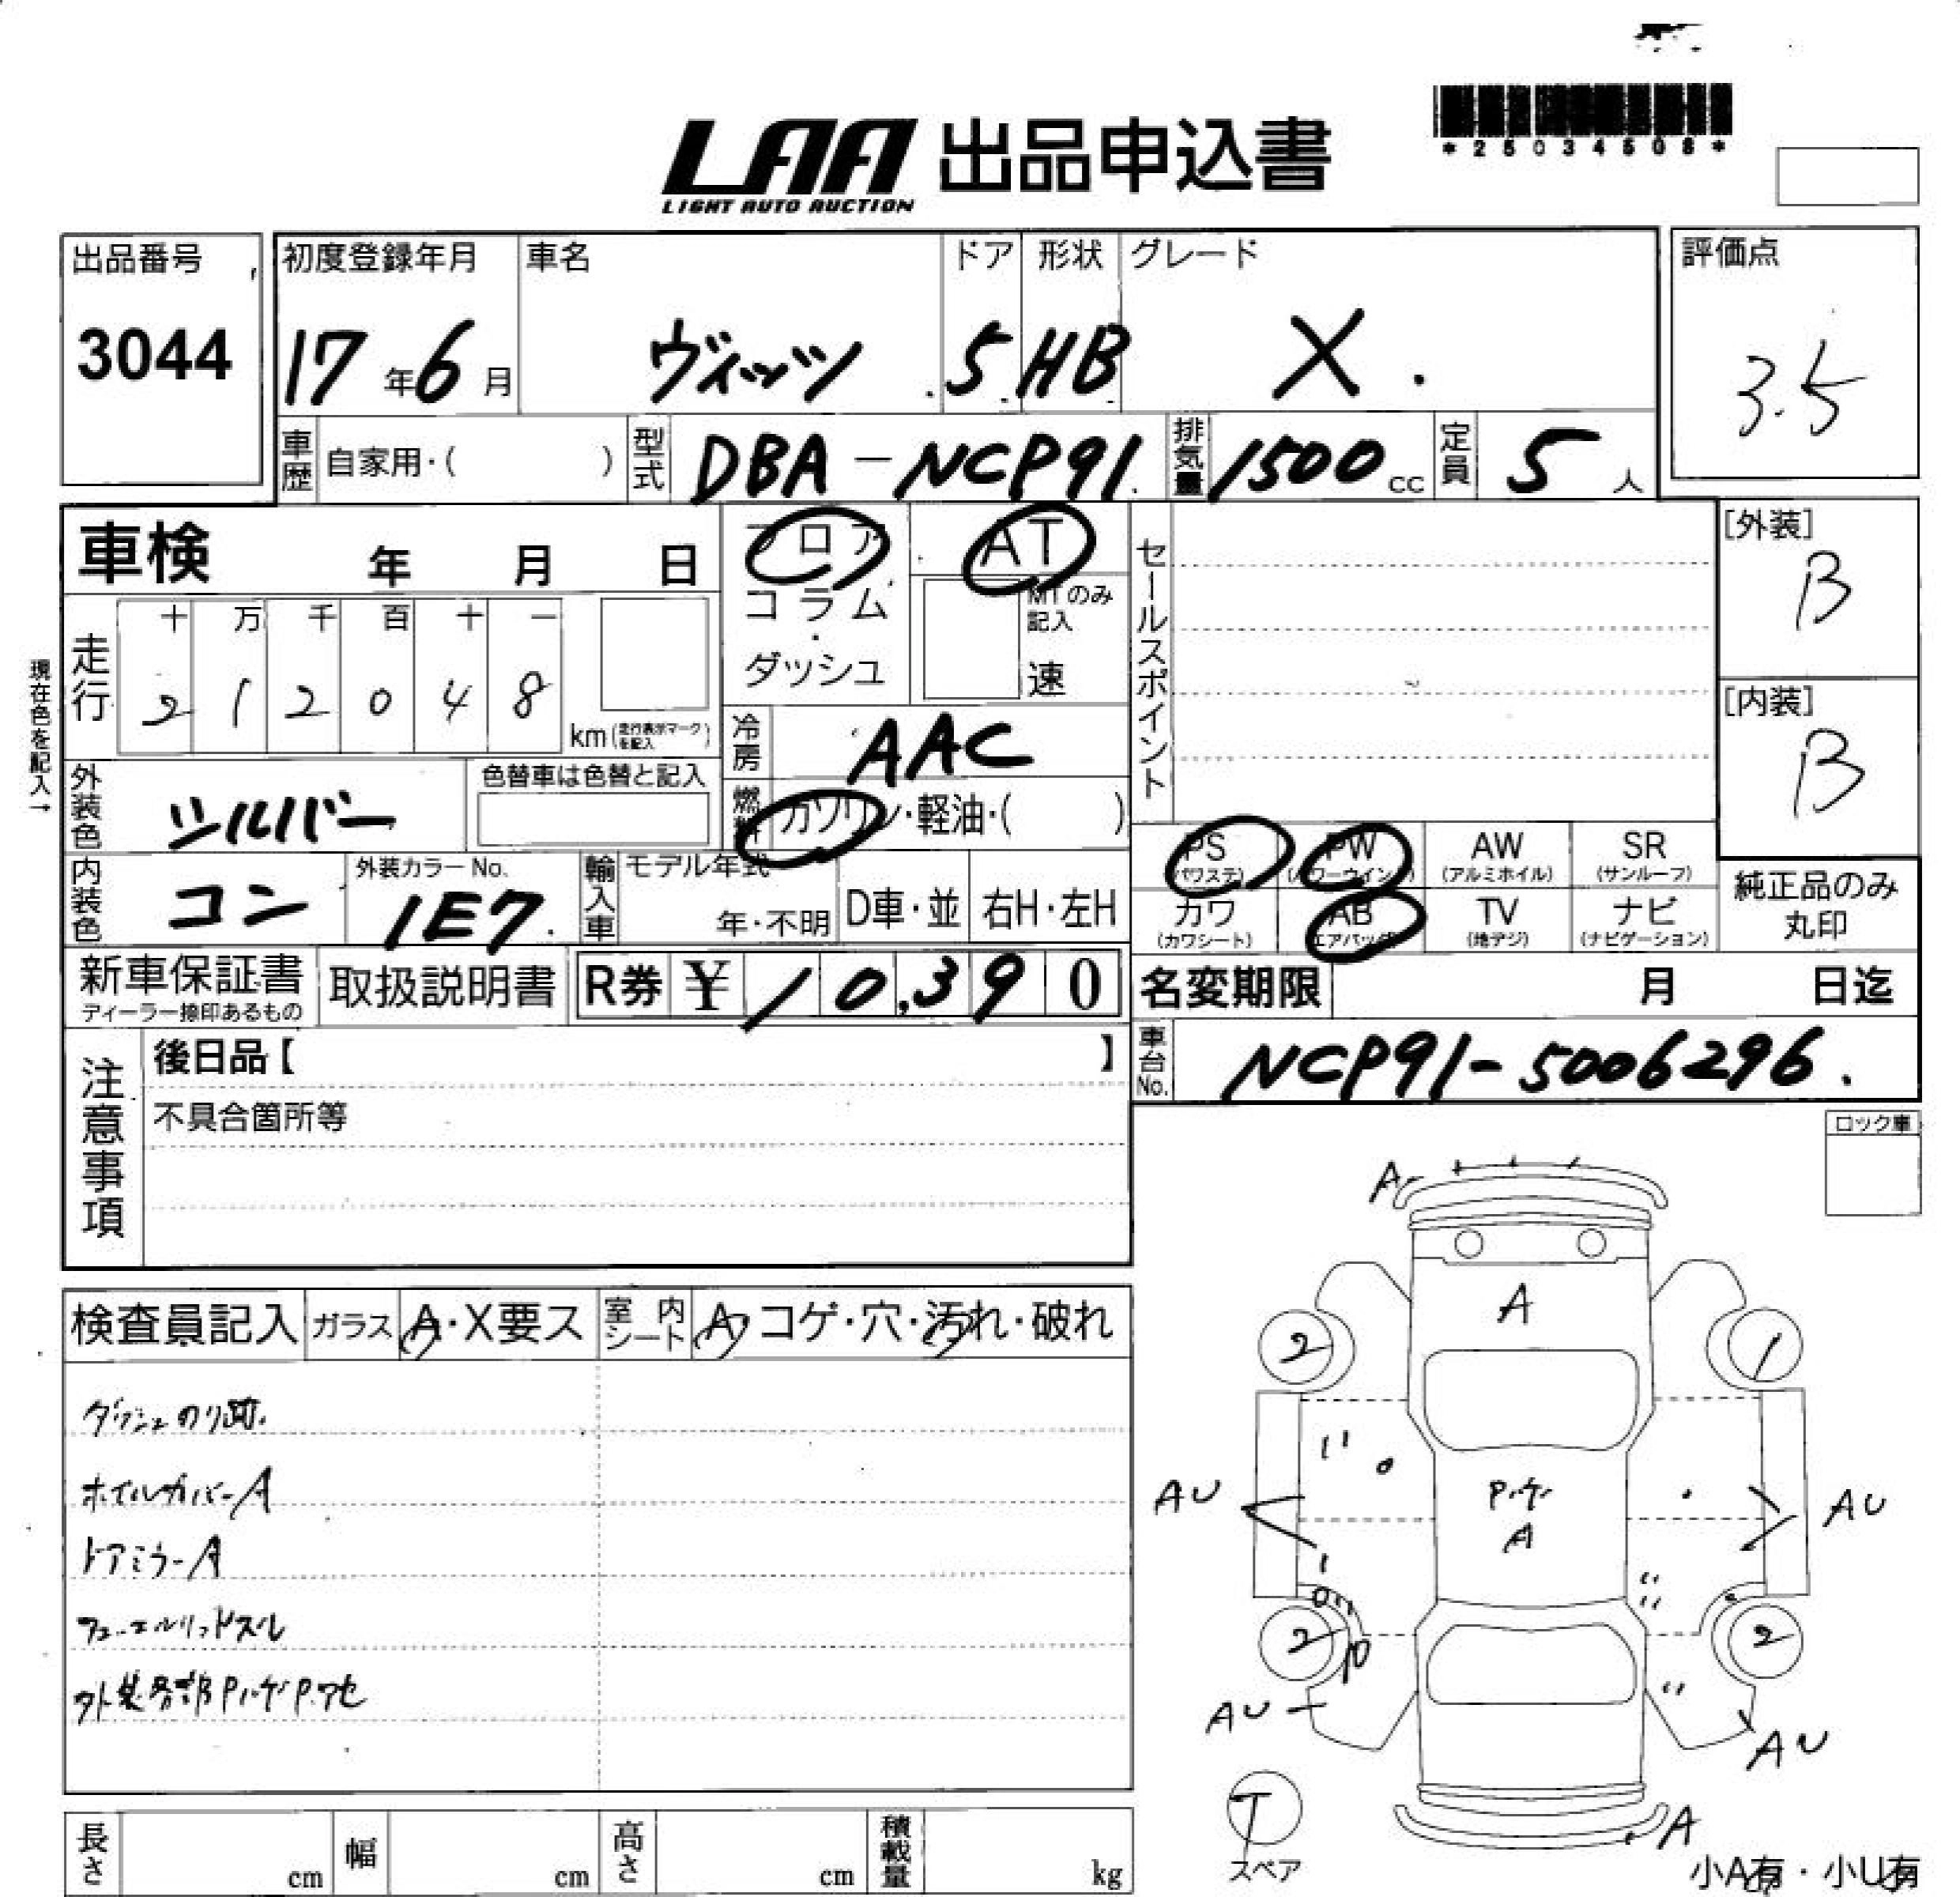 *25034508*
LAA 出品申込書
LIGHT AUTO AUCTION
出品番号 初度登録年月 車名 ドア 形状 グレード 評価点
3044 17年6月 ヴィッツ 5 HB X 3.5
車歴 自家用・( ) 型式 DBA-NCP91 排気量 1500cc 定員 5人
車検 年 月 日 フロア AT セールスポイント [外装]
B
コラム MTのみ記入
・
ダッシュ 速
走行 十 万 千 百 十 一
2 1 2 0 4 8 km(走行表示マークを記入)
[内装]
B
現在色を記入→
冷房 AAC
外装色 シルバー 色替車は色替と記入 燃料 ガソリン・軽油・( )
PS(パワステ) PW(パワーウインド) AW(アルミホイル) SR(サンルーフ)
内装色 コン 外装カラーNo. 1E7 輸入車 モデル年式 年・不明 D車・並 右H・左H
カワ(カワシート) AB(エアバッグ) TV(地デジ) ナビ(ナビゲーション) 純正品のみ丸印
新車保証書 ディーラー捺印あるもの 取扱説明書 R券 ¥ 10,390 名変期限 月 日迄
注意事項 後日品【 】 車台No. NCP91-5006296
不具合箇所等
ロック車
検査員記入 ガラス A・X要ス 室内シート A・コゲ・穴・汚れ・破れ
ダッシュのり跡
ホイルカバーA
ドアミラーA
フューエルリッドスレ
外装各部Pハゲ P.フセ
A
A
2 1
AU Pハゲ AU
A
2 P 2
AU AU
T A
スペア
小A有・小U有
長さ cm 幅 cm 高さ cm 積載量 kg